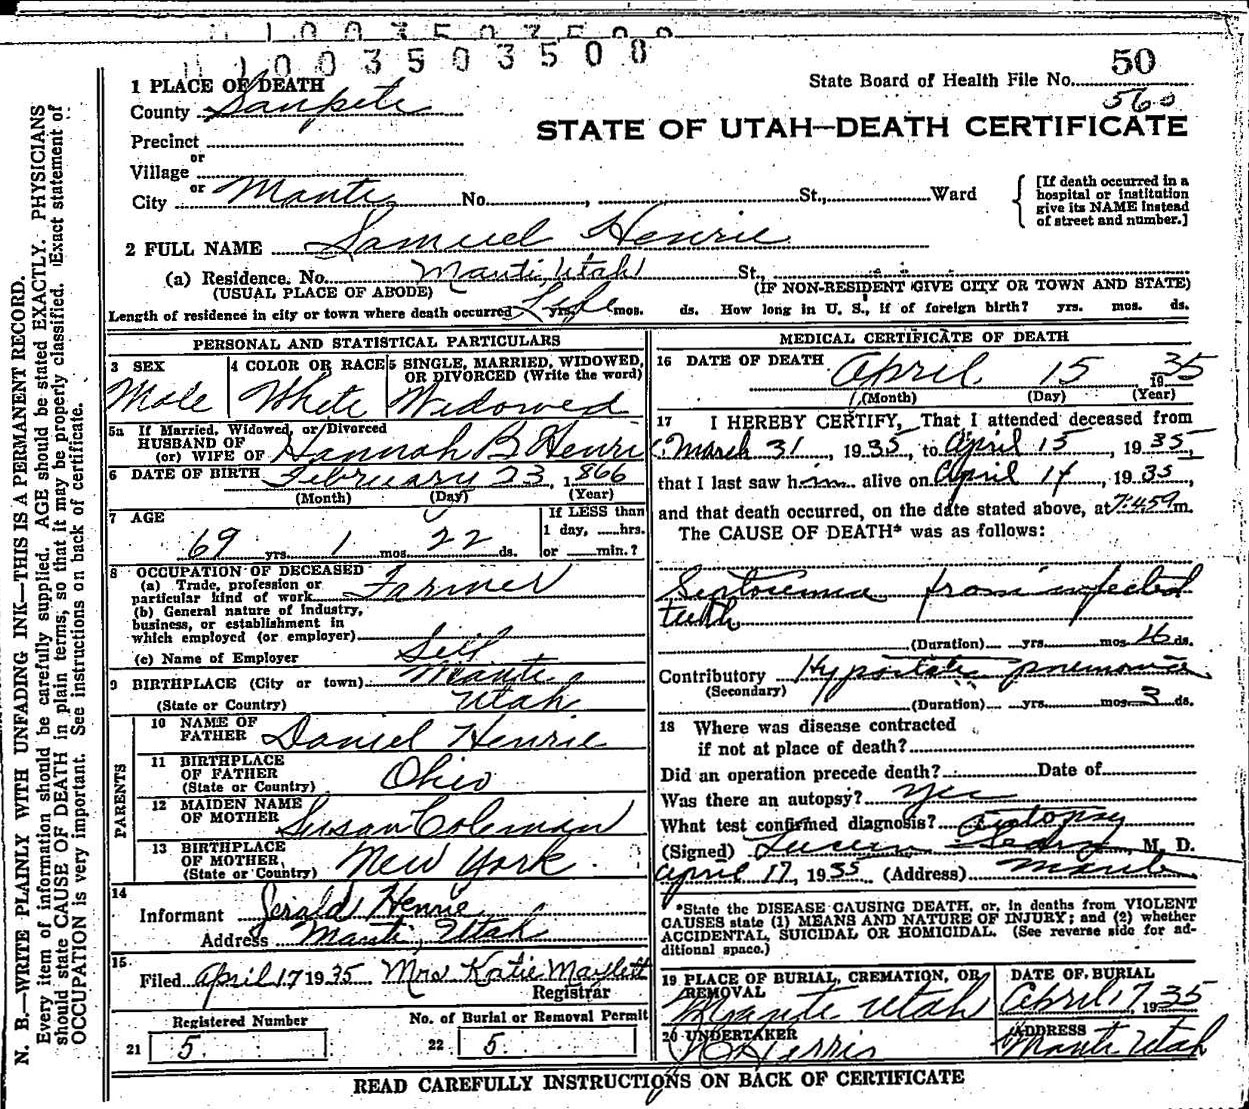 1003503508
State Board of Health File No. 50
560
STATE OF UTAH—DEATH CERTIFICATE
1 PLACE OF DEATH
County Sanpete
Precinct
or
Village
or
City Manti No. , St., Ward
[If death occurred in a hospital or institution give its NAME instead of street and number.]
2 FULL NAME Samuel Henrie
(a) Residence. No. Manti, Utah St.,
(USUAL PLACE OF ABODE) (IF NON-RESIDENT GIVE CITY OR TOWN AND STATE)
Length of residence in city or town where death occurred Life yrs. mos. ds. How long in U. S., if of foreign birth? yrs. mos. ds.
PERSONAL AND STATISTICAL PARTICULARS
3 SEX
Male
4 COLOR OR RACE
White
5 SINGLE, MARRIED, WIDOWED, OR DIVORCED (Write the word)
Widowed
5a If Married, Widowed, or Divorced
HUSBAND OF
(or) WIFE OF Hannah B Henri
6 DATE OF BIRTH February 23, 1866
(Month) (Day) (Year)
7 AGE
69 yrs. 1 mos. 22 ds.
If LESS than
1 day, hrs.
or min.?
8 OCCUPATION OF DECEASED
(a) Trade, profession or
particular kind of work Farmer
(b) General nature of industry,
business, or establishment in
which employed (or employer)
(c) Name of Employer Self
9 BIRTHPLACE (City or town) Manti
(State or Country) Utah
PARENTS
10 NAME OF
FATHER Daniel Henrie
11 BIRTHPLACE
OF FATHER
(State or Country) Ohio
12 MAIDEN NAME
OF MOTHER Susan Coleman
13 BIRTHPLACE
OF MOTHER,
(State or Country) New York
14
Informant Jerald Henrie
Address Manti, Utah
15
Filed April 17 1935 Mrs Katie Maylett
Registrar
Registered Number
21 5
No. of Burial or Removal Permit
22 5
MEDICAL CERTIFICATE OF DEATH
16 DATE OF DEATH April 15 1935
(Month) (Day) (Year)
17 I HEREBY CERTIFY, That I attended deceased from
March 31, 1935, to April 15, 1935,
that I last saw him alive on April 14, 1935,
and that death occurred, on the date stated above, at 7:45 m.
The CAUSE OF DEATH* was as follows:
from infected
teeth
(Duration) yrs. mos. ds.
Contributory Hypostatic pneumonia
(Secondary)
(Duration) yrs. mos. 3 ds.
18 Where was disease contracted
if not at place of death?
Did an operation precede death? Date of
Was there an autopsy? yes
What test confirmed diagnosis? Autopsy
(Signed) Lucien Sears, M. D.
April 17, 1935 (Address) Manti
*State the DISEASE CAUSING DEATH, or, in deaths from VIOLENT
CAUSES state (1) MEANS AND NATURE OF INJURY; and (2) whether
ACCIDENTAL, SUICIDAL OR HOMICIDAL. (See reverse side for additional space.)
19 PLACE OF BURIAL, CREMATION, OR
REMOVAL
Manti Utah
DATE OF BURIAL
April 17, 1935
20 UNDERTAKER
ADDRESS
Manti Utah
READ CAREFULLY INSTRUCTIONS ON BACK OF CERTIFICATE
N. B.—WRITE PLAINLY WITH UNFADING INK—THIS IS A PERMANENT RECORD.
Every item of information should be carefully supplied. AGE should be stated EXACTLY. PHYSICIANS
should state CAUSE OF DEATH in plain terms, so that it may be properly classified. Exact statement of
OCCUPATION is very important. See instructions on back of certificate.